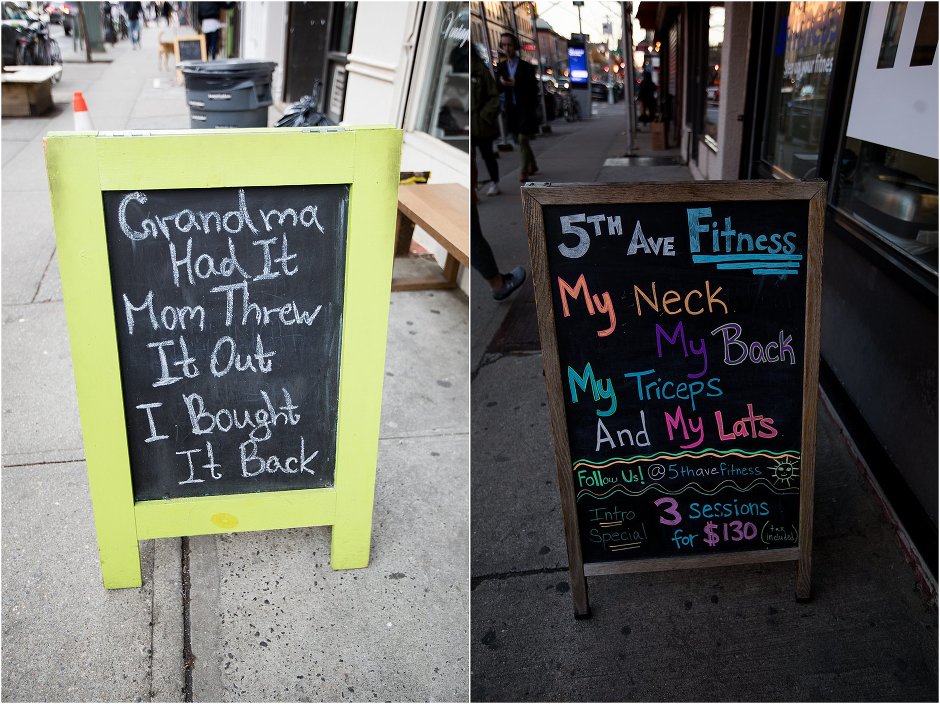 Grandma
Had It
Mom Threw
It Out
I Bought
It Back
5TH Ave Fitness
My Neck
My Back
My Triceps
And My Lats
Follow Us! @5thavefitness
Intro Special
3 sessions
for $130 (tax included)